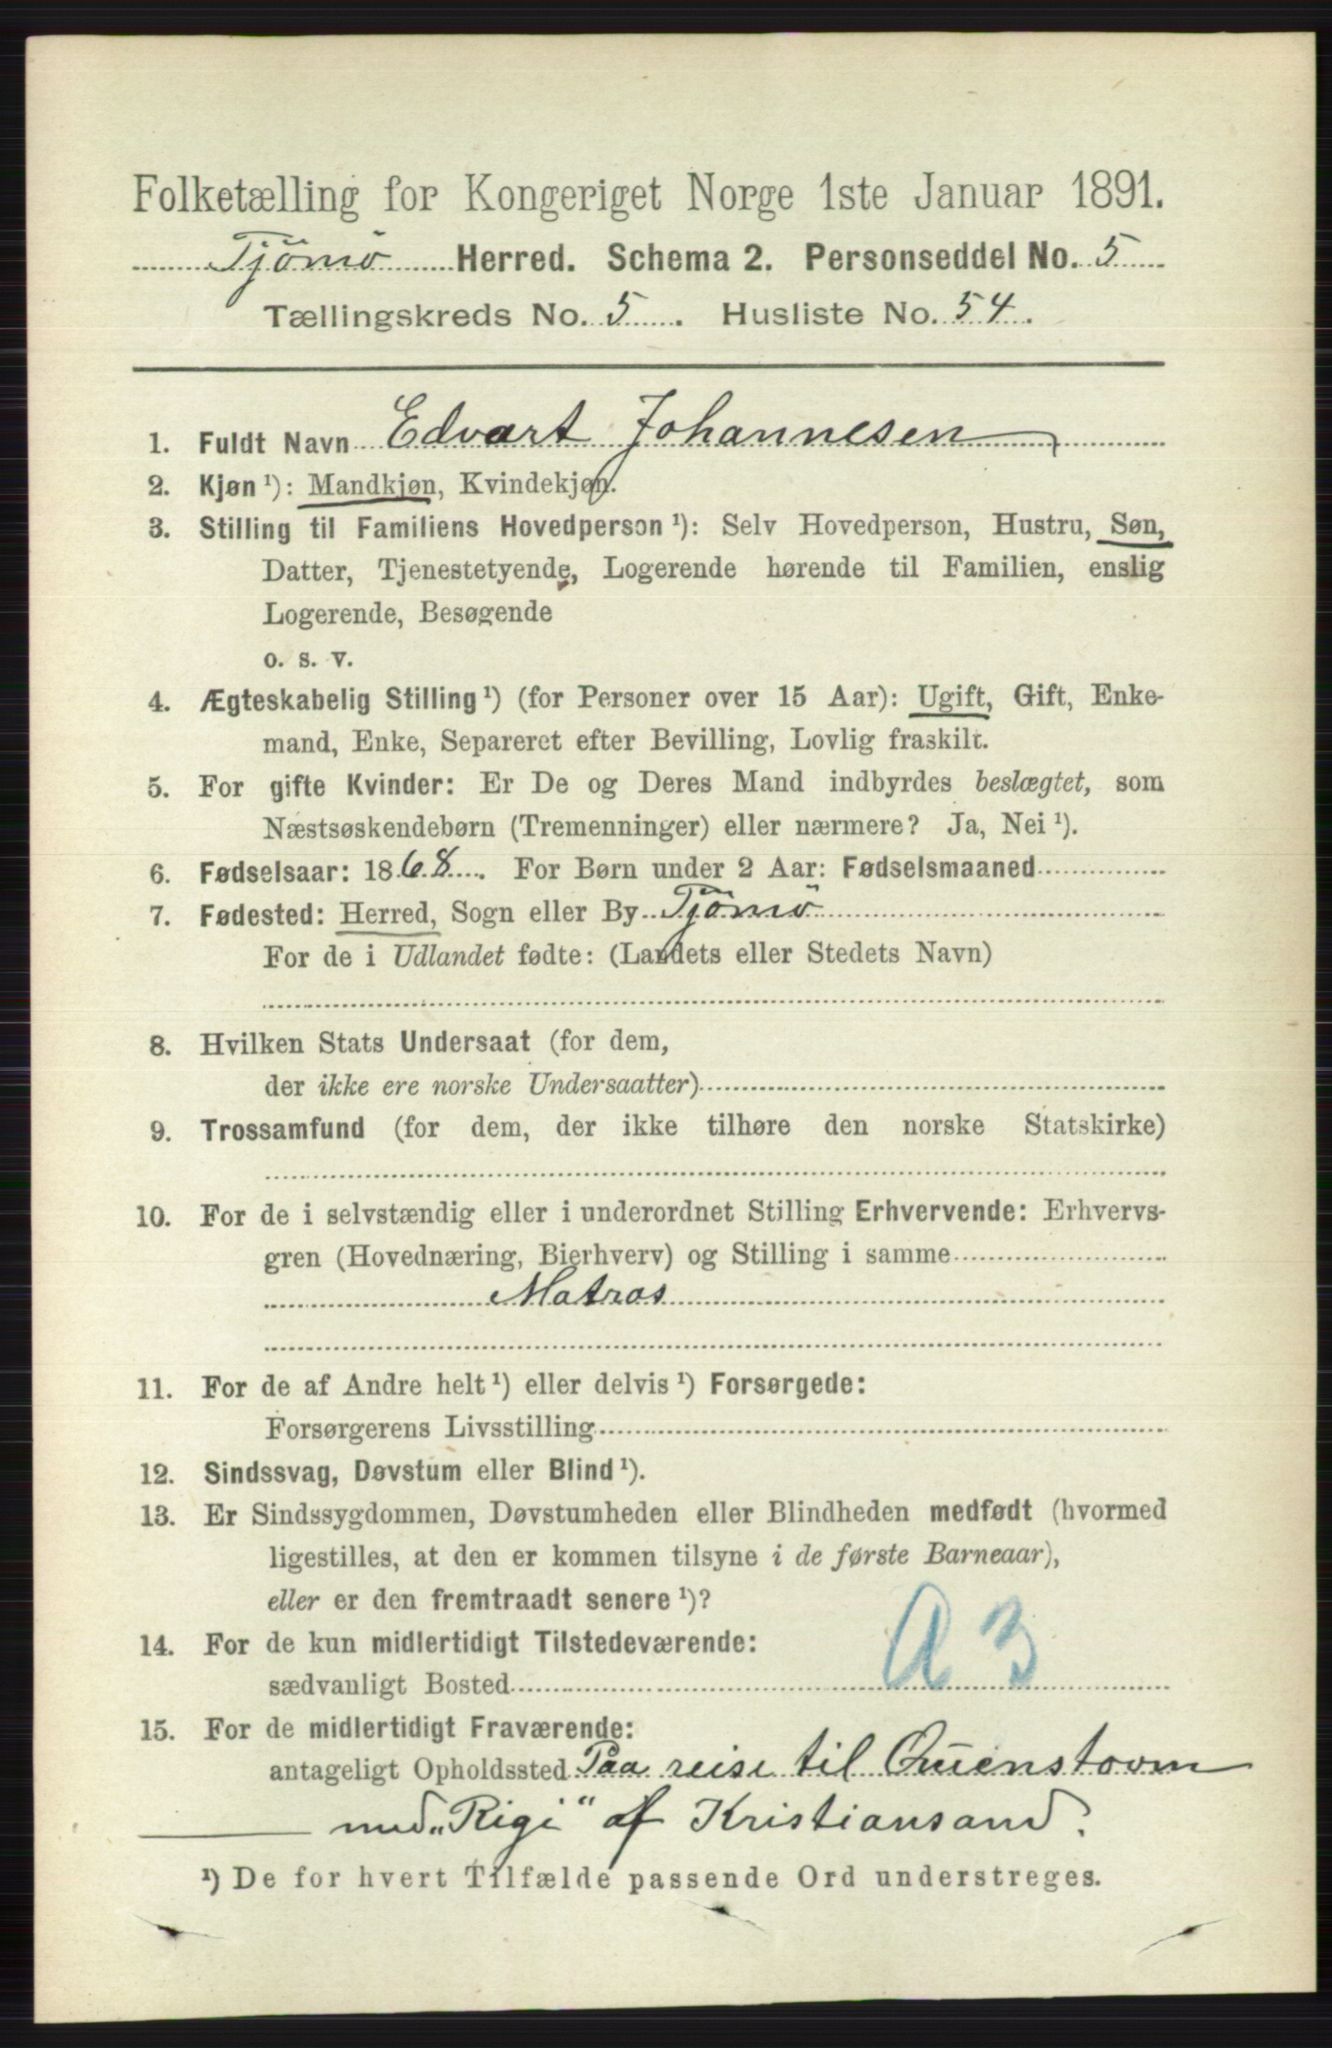 Folketælling for Kongeriget Norge 1ste Januar 1891.
Tjömö Herred. Schema 2. Personseddel No. 5
Tællingskreds No. 5. Husliste No. 54.
1. Fuldt Navn Edvart Johannesen
2. Kjøn ¹): Mandkjøn, Kvindekjøn.
3. Stilling til Familiens Hovedperson ¹): Selv Hovedperson, Hustru, Søn,
Datter, Tjenestetyende, Logerende hørende til Familien, enslig
Logerende, Besøgende
o. s. v.
4. Ægteskabelig Stilling ¹) (for Personer over 15 Aar): Ugift, Gift, Enke-
mand, Enke, Separeret efter Bevilling, Lovlig fraskilt.
5. For gifte Kvinder: Er De og Deres Mand indbyrdes beslægtet, som
Næstsøskendebørn (Tremenninger) eller nærmere? Ja, Nei ¹).
6. Fødselsaar: 1868. For Børn under 2 Aar: Fødselsmaaned
7. Fødested: Herred, Sogn eller By Tjömö
For de i Udlandet fødte: (Landets eller Stedets Navn)
8. Hvilken Stats Undersaat (for dem,
der ikke ere norske Undersaatter)
9. Trossamfund (for dem, der ikke tilhøre den norske Statskirke)
10. For de i selvstændig eller i underordnet Stilling Erhvervende: Erhvervs-
gren (Hovednæring, Bierhverv) og Stilling i samme
Matros
11. For de af Andre helt ¹) eller delvis ¹) Forsørgede:
Forsørgerens Livsstilling
12. Sindssvag, Døvstum eller Blind ¹).
13. Er Sindssygdommen, Døvstumheden eller Blindheden medfødt (hvormed
ligestilles, at den er kommen tilsyne i de første Barneaar),
eller er den fremtraadt senere ¹)?
14. For de kun midlertidigt Tilstedeværende:
sædvanligt Bosted
A 3
15. For de midlertidigt Fraværende:
antageligt Opholdssted Paa reise til Quenstovm
med „Rigi" af Kristiansand.
¹) De for hvert Tilfælde passende Ord understreges.